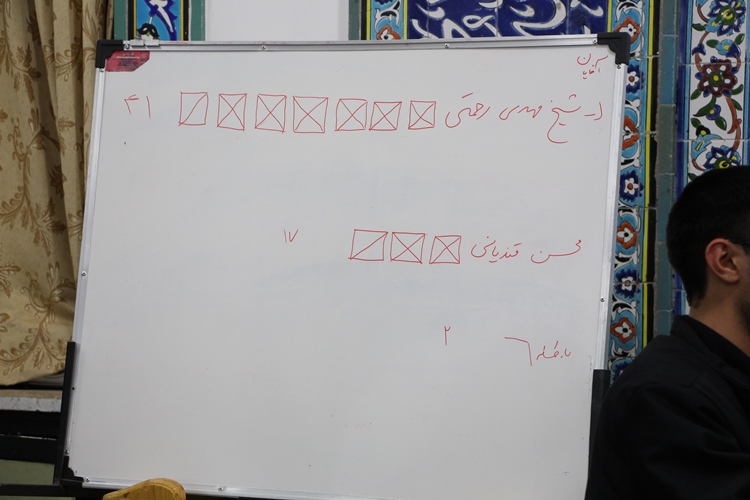 آقایان
۱- شیخ مهدی رحمتی ۴۱
محسن قندیانی ۱۷
باطله ۲